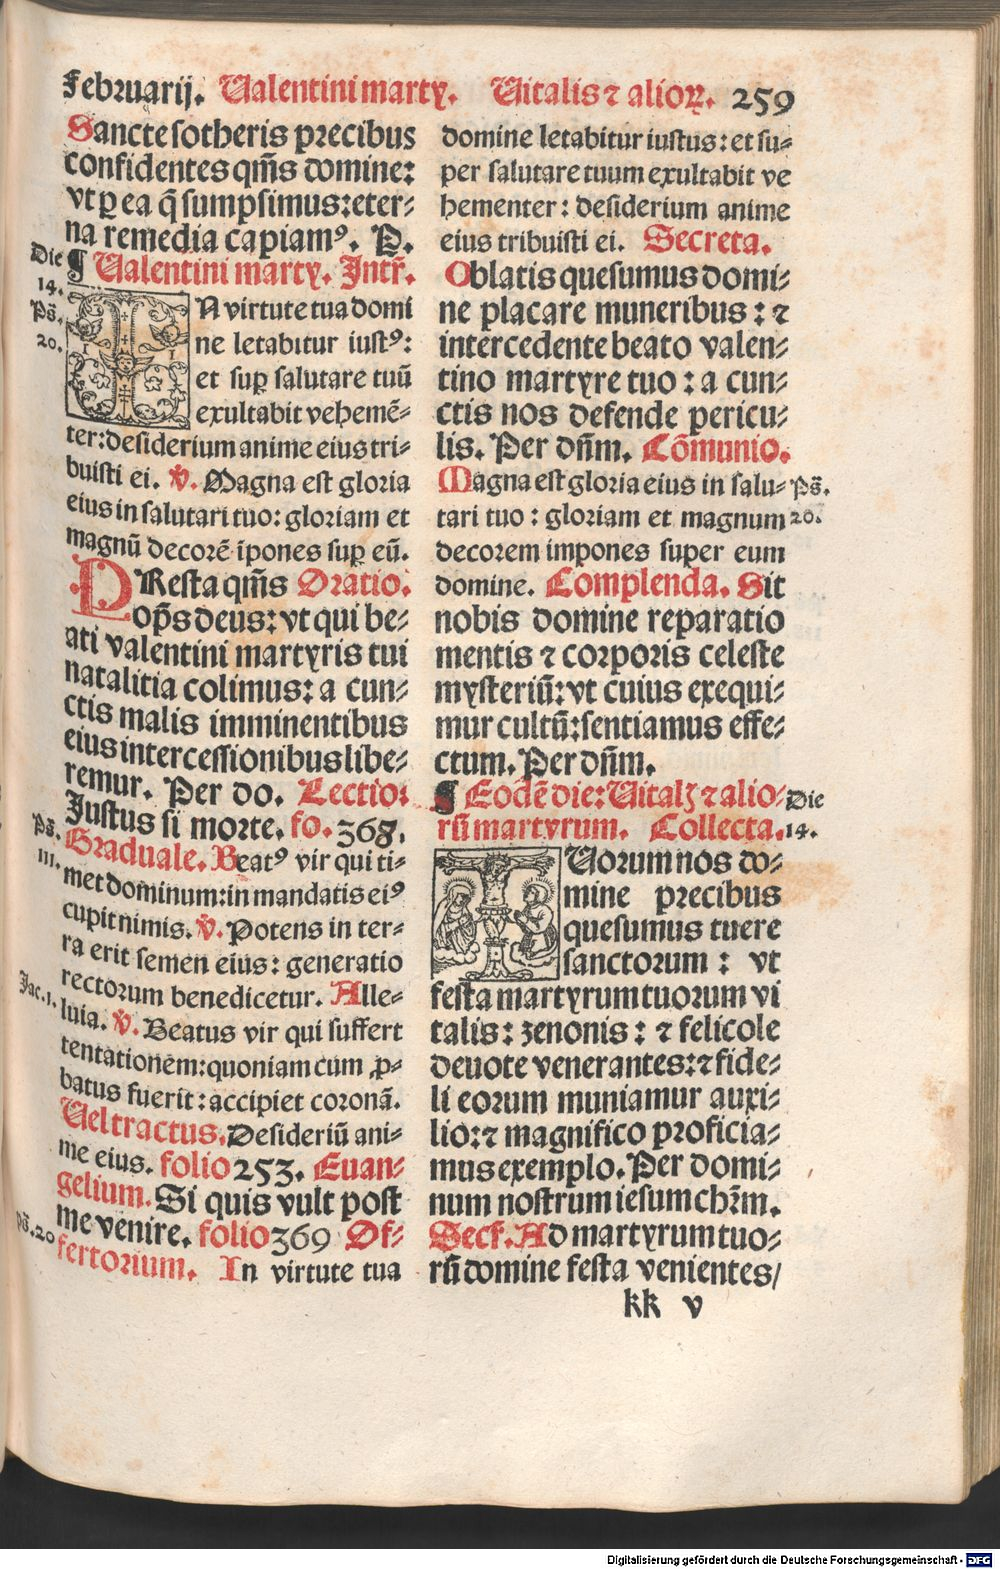 Februarij. Ualentini martyꝝ. Uitalis ⁊ alioꝝ. 259
Sancte sotheris precibus
confidentes qm̃s domine:
vt ꝑ ea q̃ sumpsimus: eter-
na remedia capiamꝰ. P.
Die 14.
¶ Ualentini marty. Intr̃.
Ps̃. 20.
IN virtute tua domi
ne letabitur iustꝰ:
et suꝑ salutare tuũ
exultabit vehemẽ-
ter: desiderium anime eius tri-
buisti ei. ℣. Magna est gloria
eius in salutari tuo: gloriam et
magnũ decorẽ ĩpones suꝑ eũ.
PResta qm̃s Oratio.
op̃s deus: vt qui be-
ati valentini martyris tui
natalitia colimus: a cun-
ctis malis imminentibus
eius intercessionibus libe-
remur. Per do. Lectio:
Justus si morte. fo. 368.
Ps̃. 111.
Graduale. Beatꝰ vir qui ti-
met dominum: in mandatis eiꝰ
cupit nimis. ℣. Potens in ter-
ra erit semen eius: generatio
rectorum benedicetur. Alle-
Jac. 1.
luia. ℣. Beatus vir qui suffert
tentationem: quoniam cum ꝓ-
batus fuerit: accipiet coronã.
Uel tractus. Desideriũ ani-
me eius. folio 253. Euan-
gelium. Si quis vult post
me venire. folio 369 Of-
Ps̃. 20
fertorium. In virtute tua
domine letabitur iustus: et su-
per salutare tuum exultabit ve
hementer: desiderium anime
eius tribuisti ei. Secreta.
Oblatis quesumus domi-
ne placare muneribus: ⁊
intercedente beato valen-
tino martyre tuo: a cun-
ctis nos defende pericu-
lis. Per dñm. Cõmunio.
Magna est gloria eius in salu-
Ps̃. 20.
tari tuo: gloriam et magnum
decorem impones super eum
domine. Complenda. Sit
nobis domine reparatio
mentis ⁊ corporis celeste
mysteriũ: vt cuius exequi-
mur cultũ: sentiamus effe-
ctum. Per dñm.
¶ Eodẽ die: Uitalꝭ ⁊ alio-
Die 14.
rũ martyrum. Collecta.
TUorum nos do-
mine precibus
quesumus tuere
sanctorum: vt
festa martyrum tuorum vi
talis: zenonis: ⁊ felicole
deuote venerantes: ⁊ fide-
li eorum muniamur auxi-
lio: ⁊ magnifico proficia-
mus exemplo. Per domi-
num nostrum iesum chr̃m.
Secr̃. Ad martyrum tuo-
rũ domine festa venientes/
kk v
Digitalisierung gefördert durch die Deutsche Forschungsgemeinschaft - DFG